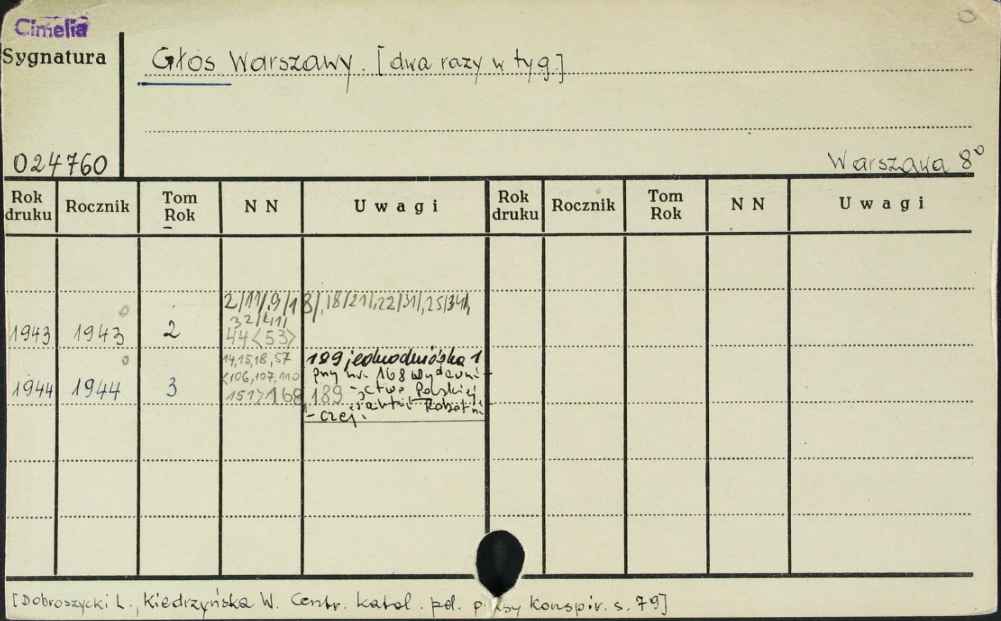 Cimelia
Sygnatura
Głos Warszawy. [dwa razy w tyg.]
024760
Warszawa 8°
Rok druku Rocznik Tom Rok NN Uwagi Rok druku Rocznik Tom Rok NN Uwagi
2/11/,9/18/,18/21/,22/31/,25/34/,
32/41/
1943 1943 2 44<53>
14,15,18,57 189 jednodniówka 1
<106,107,110 przy nr. 168 wydawni-
1944 1944 3 151>168,189 -ctwo Polskiej
Partii Robotni
-czej.
[Dobroszycki L., Kiedrzyńska W. Centr. katal. pol. prasy konspir. s. 79]